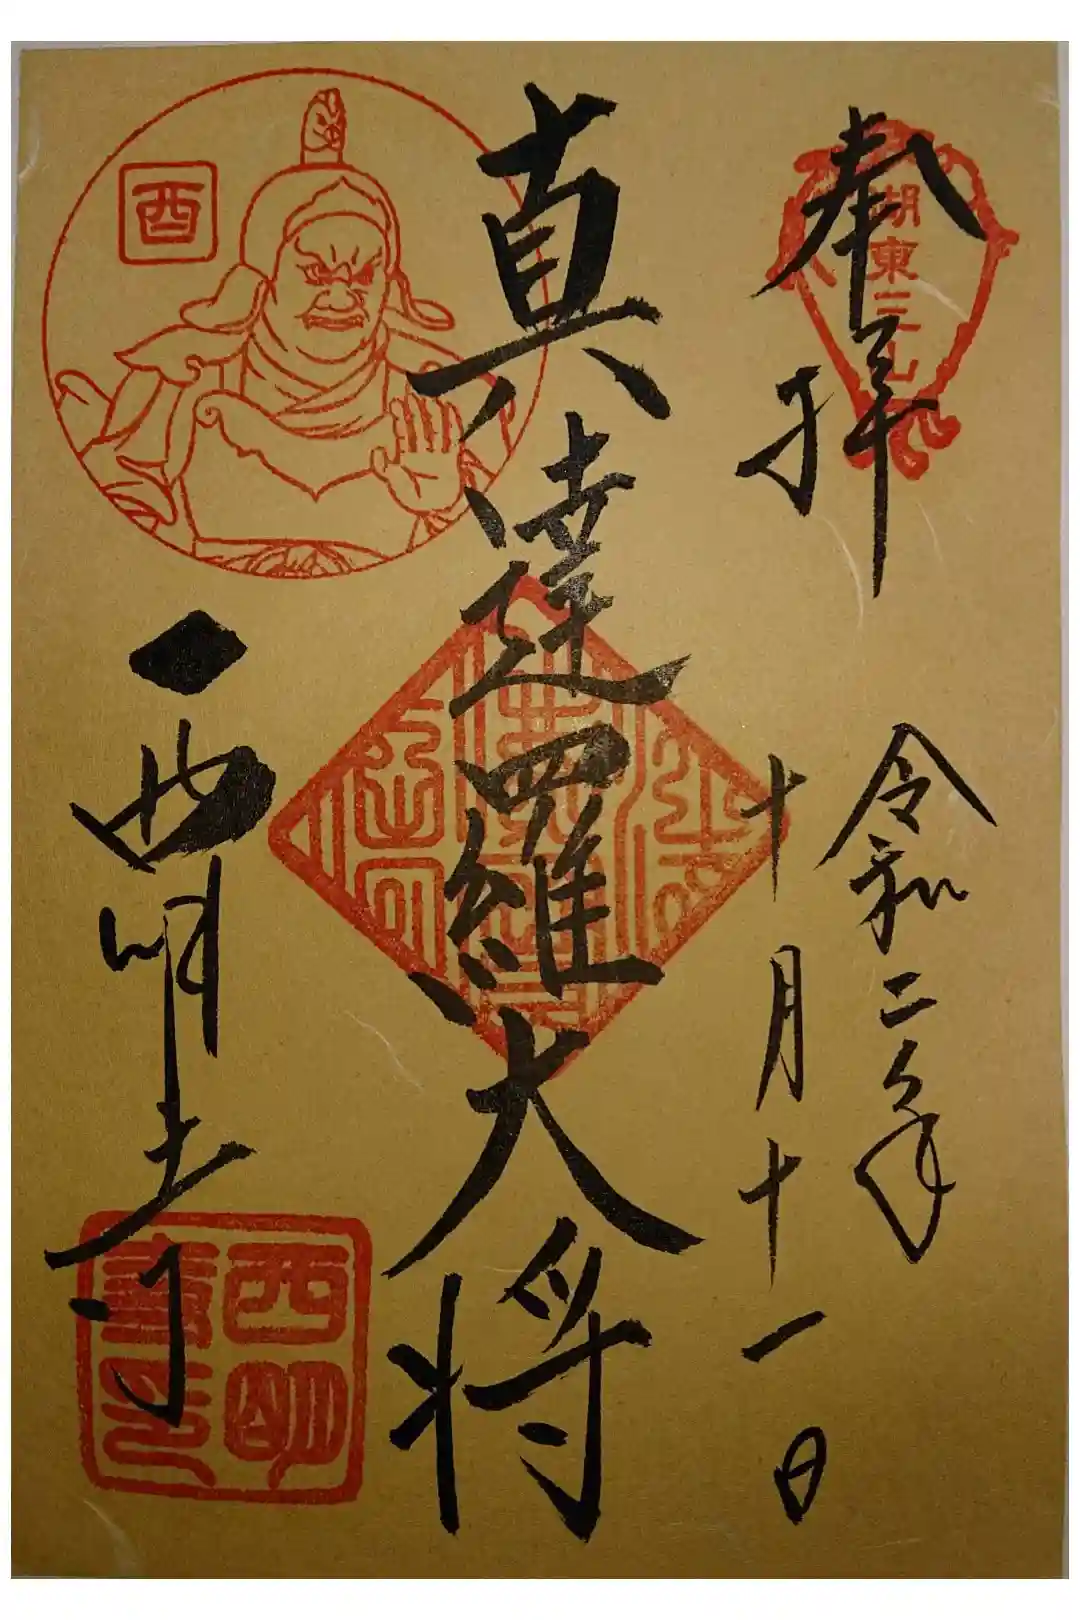 奉拝
湖東三山
令和二年
十月十一日
真達羅大将
酉
西明寺
西明
寺印